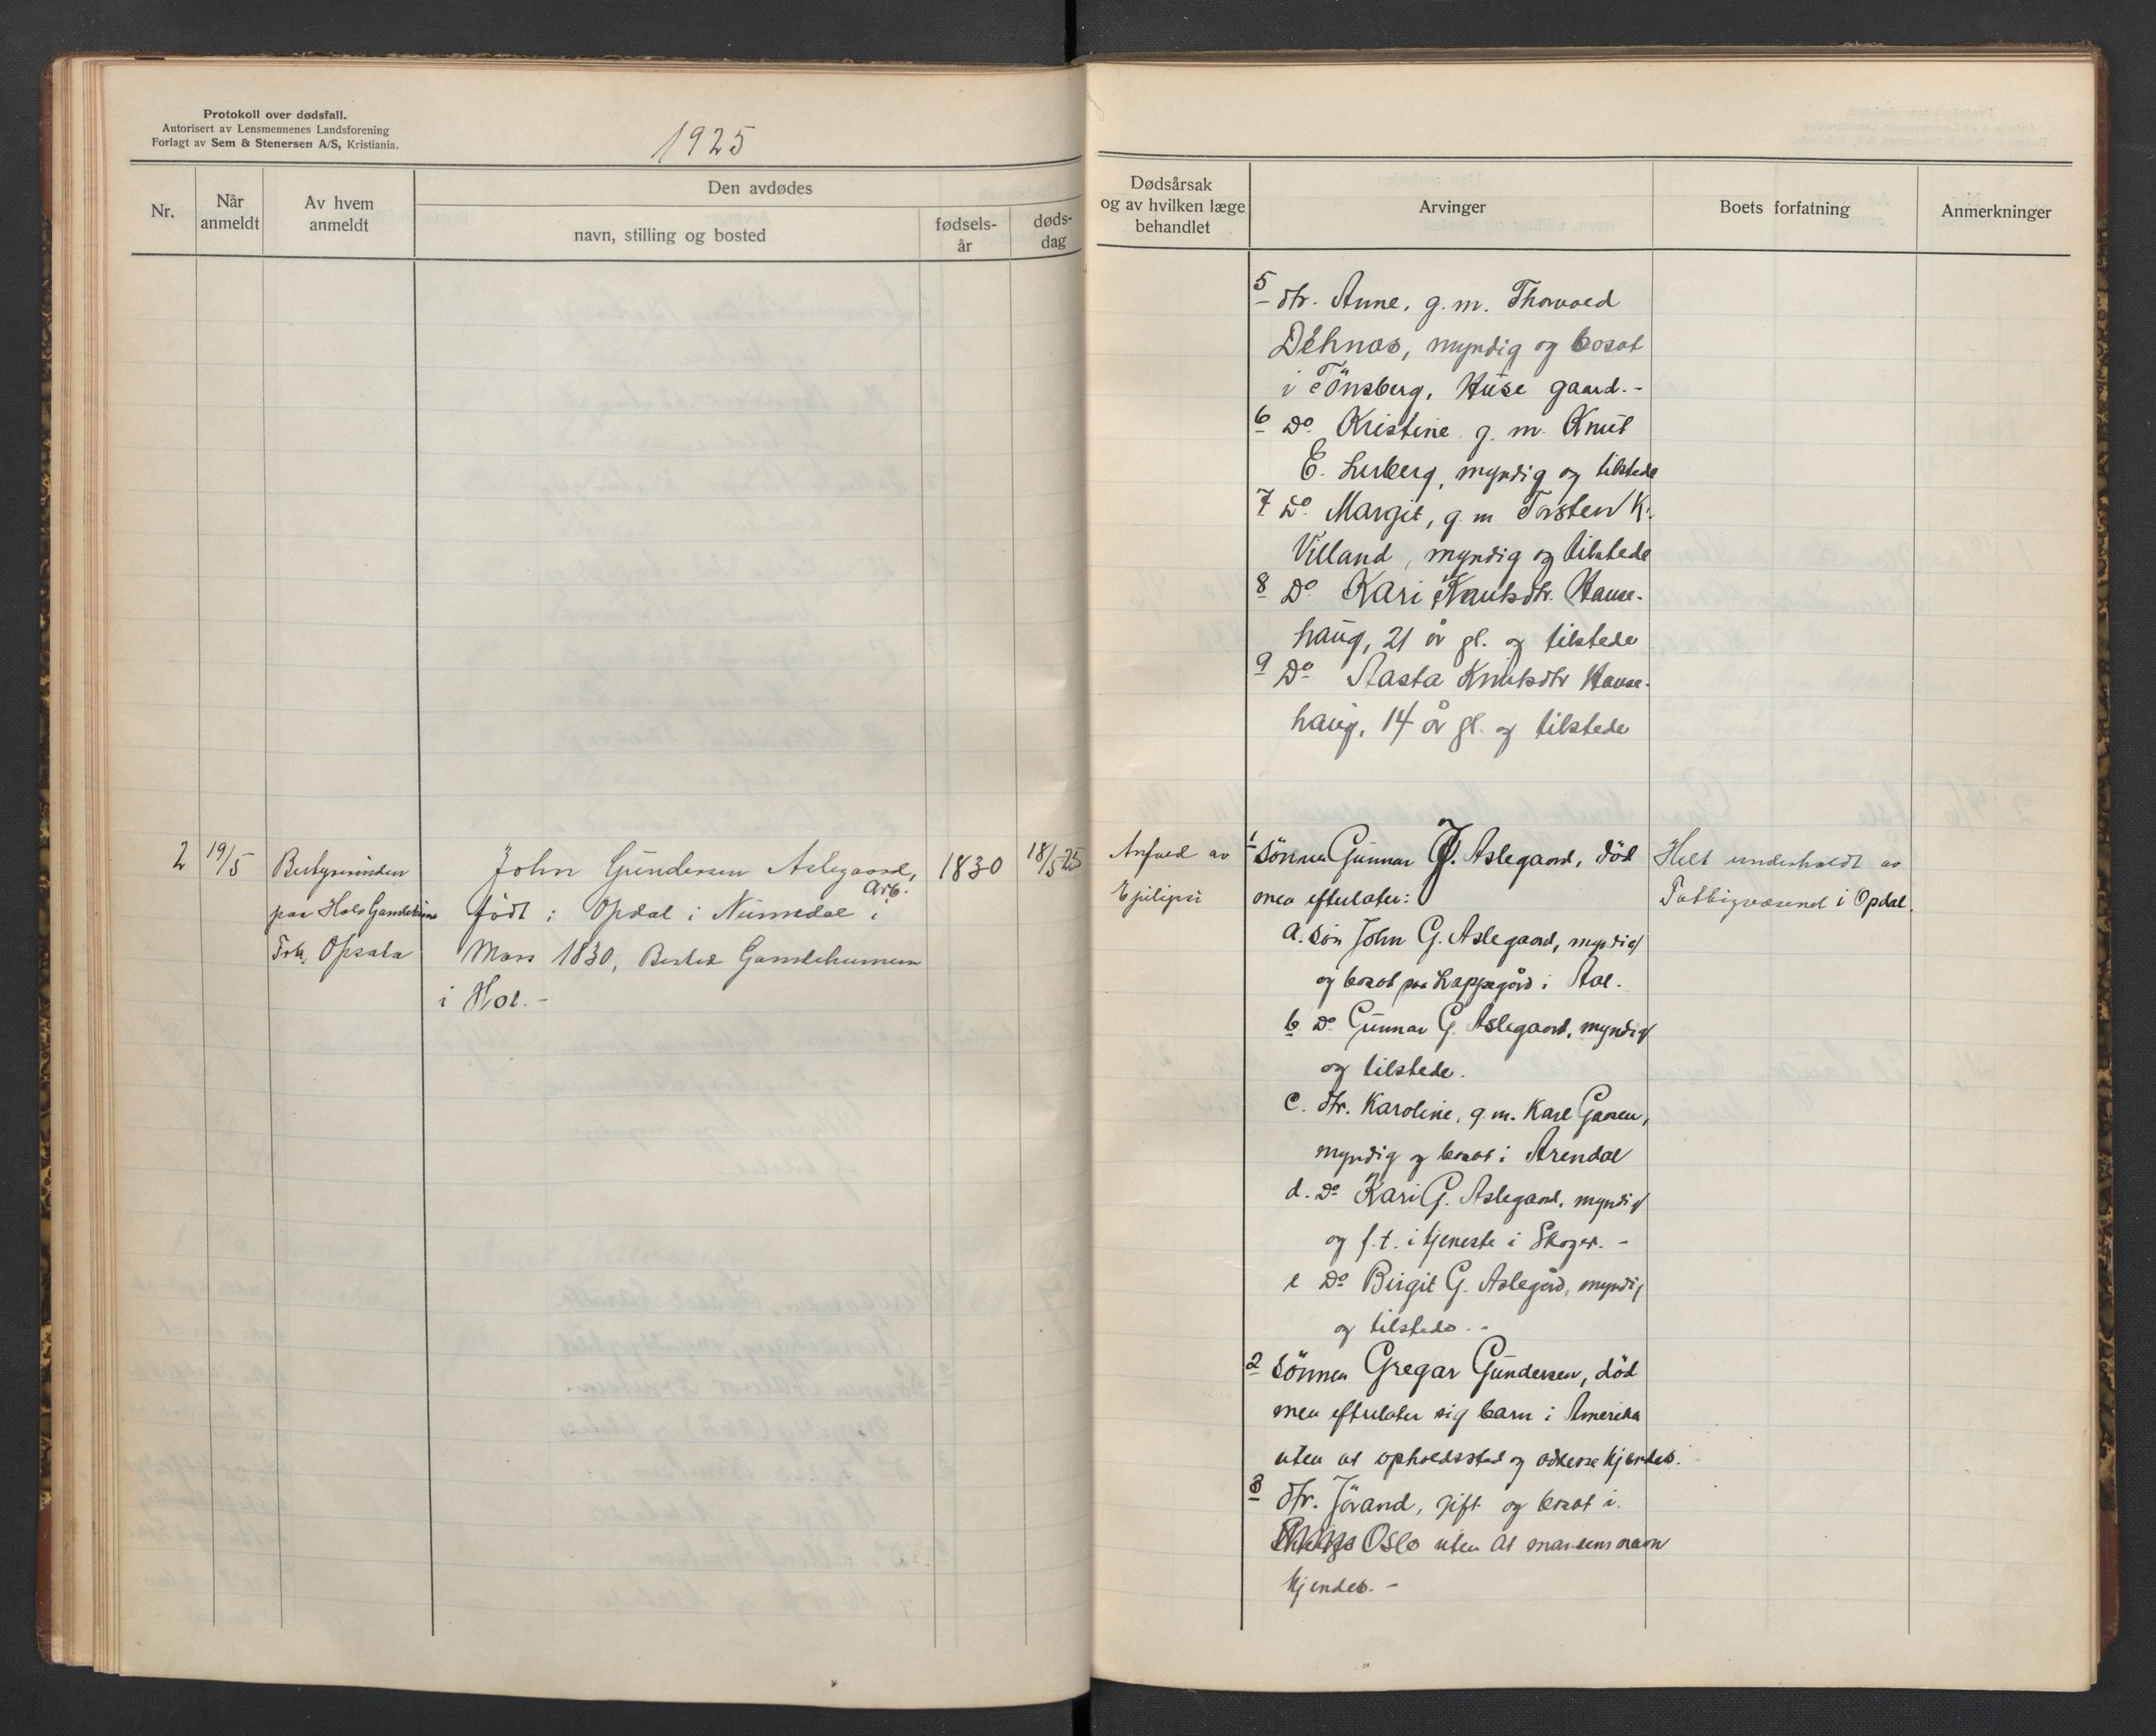 Protokoll over dødsfall.
Autorisert av Lensmennenes Landsforening
Forlagt av Sem & Stenersen A/S, Kristiania.
1925
Nr.
Når
anmeldt
Av hvem
anmeldt
Den avdødes
navn, stilling og bosted
fødsels-
år
døds-
dag
2
19/5
Bestyrerinden
paa Hols Gamlehjem
Frk. Opsata
John Gundersen Aslegaard,
arb.
født i Opdal i Numedal i
Mars 1830, Bosted Gamlehjemmet
i Hol. -
1830
18/5-25
Dødsårsak
og av hvilken læge
behandlet
Arvinger
Boets forfatning
Anmerkninger
5 dtr. Anne, g. m. Thorvald
Dehnas, myndig og bosat
i Tönsberg, Huse gaard. -
6 Do Kristine g. m. Knut
E. Lerberg, myndig og tilstede
7 Do Margit, g. m Torsten K.
Villand, myndig og tilstede
8 Do Kari Knutsdtr. Hause-
haug, 21 år gl. og tilstede
9 Do Aasta Knutsdtr Hause-
haug, 14 år gl. og tilstede
Anfald av
Epilipsi
1 Sönnen Gunnar J. Aslegaard, död
men efterlater:
a. Sön John G. Aslegaard, myndig
og bosat paa Lappegård i Aal.
b Do Gunnar G. Aslegaard, myndig
og tilstede.
c. dtr. Karoline, g. m. Karl Gansen,
myndig og bosat i Arendal
d. Do Kari G. Aslegaard, myndig
og f. t. i tjeneste i Skoger. -
e Do Birgit G. Aslegård, myndig
og tilstede. -
2 Sönnen Gregar Gundersen, död
men efterlater sig barn i Amerika
uten at opholdssted og adresse kjendes.
3 dtr. Jörand, gift og bosat i
Oslo uten at mandens navn
kjendes. -
Helt underholdt av
Fattigvæsenet i Opdal.